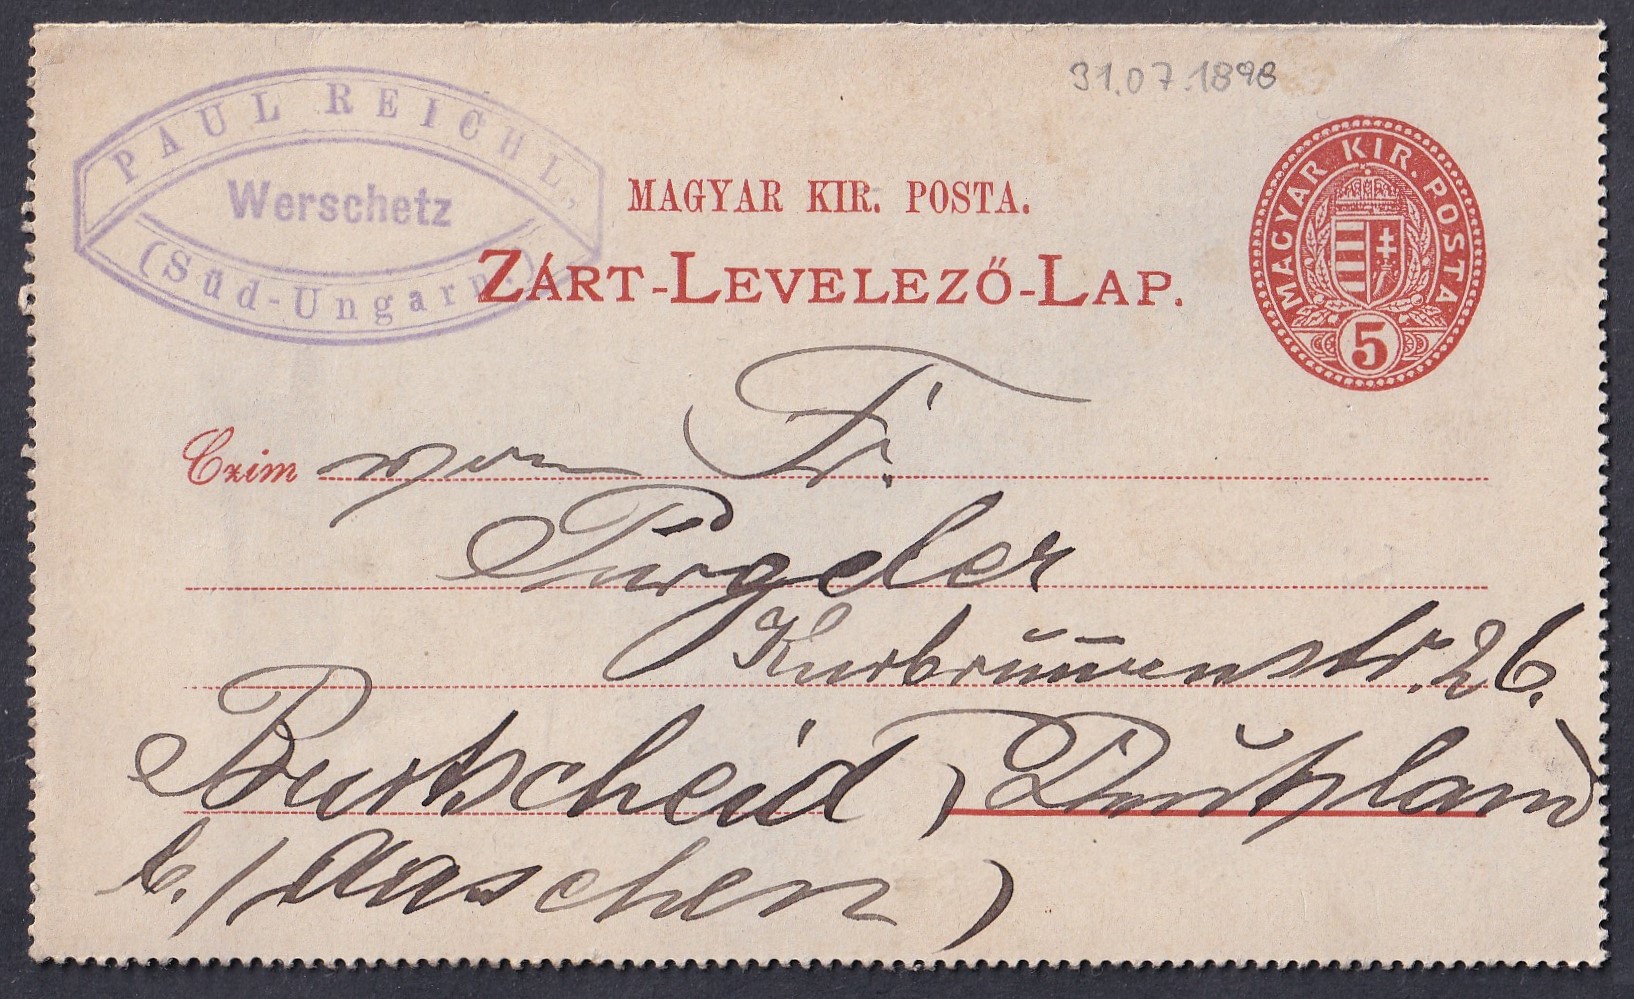 31.07.1898
PAUL REICHL,
Werschetz
(Süd-Ungarn.)
MAGYAR KIR. POSTA.
ZÁRT-LEVELEZŐ-LAP.
MAGYAR KIR. POSTA
5
Czim Fr.
Pürgeler
Kurbrunnenstr. 26.
Burtscheid, (Deutschland
b./Aaschen)